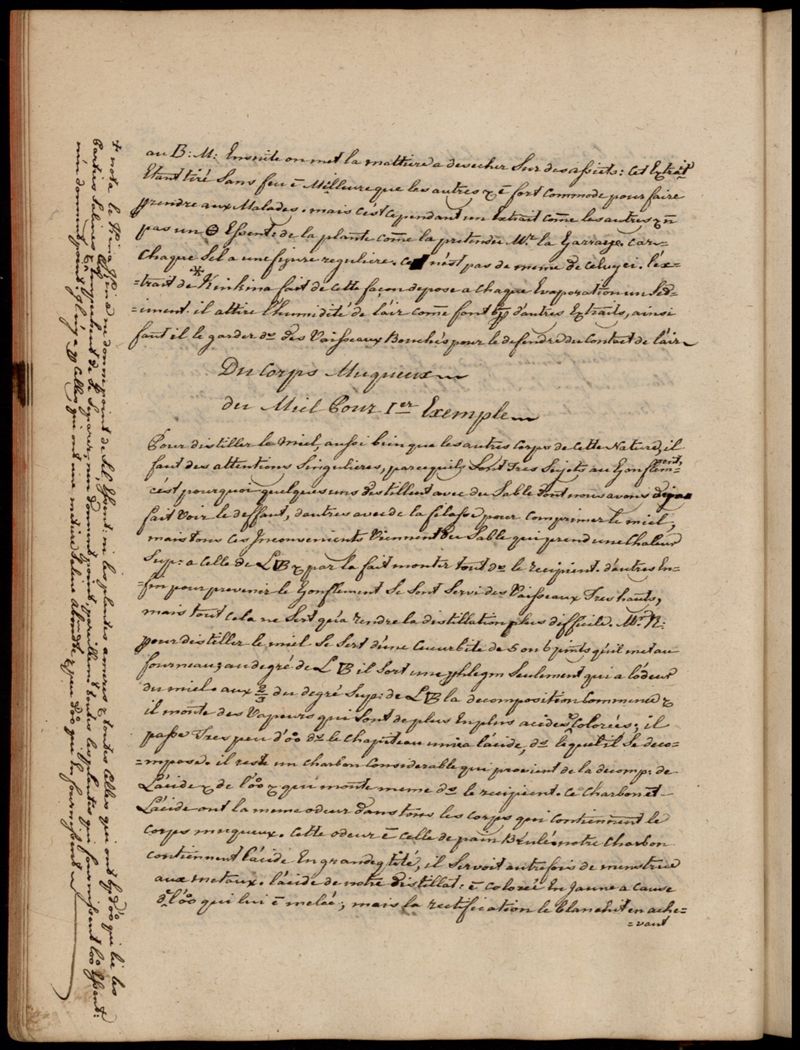 au B: M: Ensuite on met la mattiere a desecher Sur des assiets: Cet Extrait
Etant tiré Sans feu ē Meilleure que les autres & ē fort commode pour faire
prendre aux Malades. mais c'est Cependant un Extrait come les autres & ñ
pas un ⊖ Essent: de la plante come la pretendu Mr. la Garraye. Car
Chaque Sel a une figure reguliere. Ce n'est pas de meme de Celuy ci. l'ex=
=trait de * Kinkina fait de cette façon depose a Chaque Evaporation un Sed=
=iment. il attire l'humidité de l'air come font d'autres Extraits, ainsi
faut il le garder ds des Vaisseaux Bouchés pour le defendre du Contact de l'air
Du Corps Muqueux
du Miel Pour Ier Exemple
Pour distiller le Miel, aussi bien que les autres Corps de Cette Nature, il
faut des attentions Singulieres, parcequ'ils Sont Tres Sujets au Gonflem=
ment,
c'est pourquoi quelques uns distillent avec du Sable dont nous avons deja
fait Voir le deffaut, d'autres avec de la filasse pour comprimer le miel,
mais tous Ces Inconvenients Viennent du Sable qui prend une Chaleur
Sup: a Celle de L'🜄B & par la fait monter tout ds le recipient. d'autres En=
=fin pour prevenir le Gonflement Se Sont Servi des Vaisseaux Tres hauts,
mais tout Cela ne Sert qu'a rendre la distillation plus difficile. Mr. R:
pour distiller le miel Se Sert d'une Cucurbite de 5 ou 6 pints qu'il met au
fourneau; au degré de L'🜄B il Sort une phlegm Seulement qui a l'odeur
du miel. aux 2/3 du degré Sup: de L'🜄B la decomposition Commence &
il monte des Vapeurs qui Sont de plus En plus acides & Colorées; il
passe Tres peu d'oo ds le Chapiteau uni a l'acide, ds lequel il Se deco=
=mpose. il reste un Charbon Considerable qui provient de la decomp: de
L'acide & de l'oo & qui monte meme ds le recipient. Ce Charbon et
L'acide ont la meme odeur dans tous les Corps qui Contiennent le
Corps muqueux. Cette odeur ē Celle de pain Brulé. notre Charbon
contiennent l'acide En grande qtité, il Servoit autrefois de menstrue
aux metaux. l'acide de notre distillat: ē Colorée En Jaune a Cause
de l'oo qui lui ē melée; mais la rectification le Blanchit en ache=
=vant
+ nota le Kina Kina ne donne point de Sel Essent: ni les plantes ameres & toutes Celles qui ont bp d'oo qui lie les
Parties Salines & Empechent de Se Separer, n'en donnent point pareillem: toutes les plantes qui fournissent l'oo Essent:
n'en donnent point, il n'y a que Celles qui ont une matiere Saline abondte & peu d'oo qui En fournissent